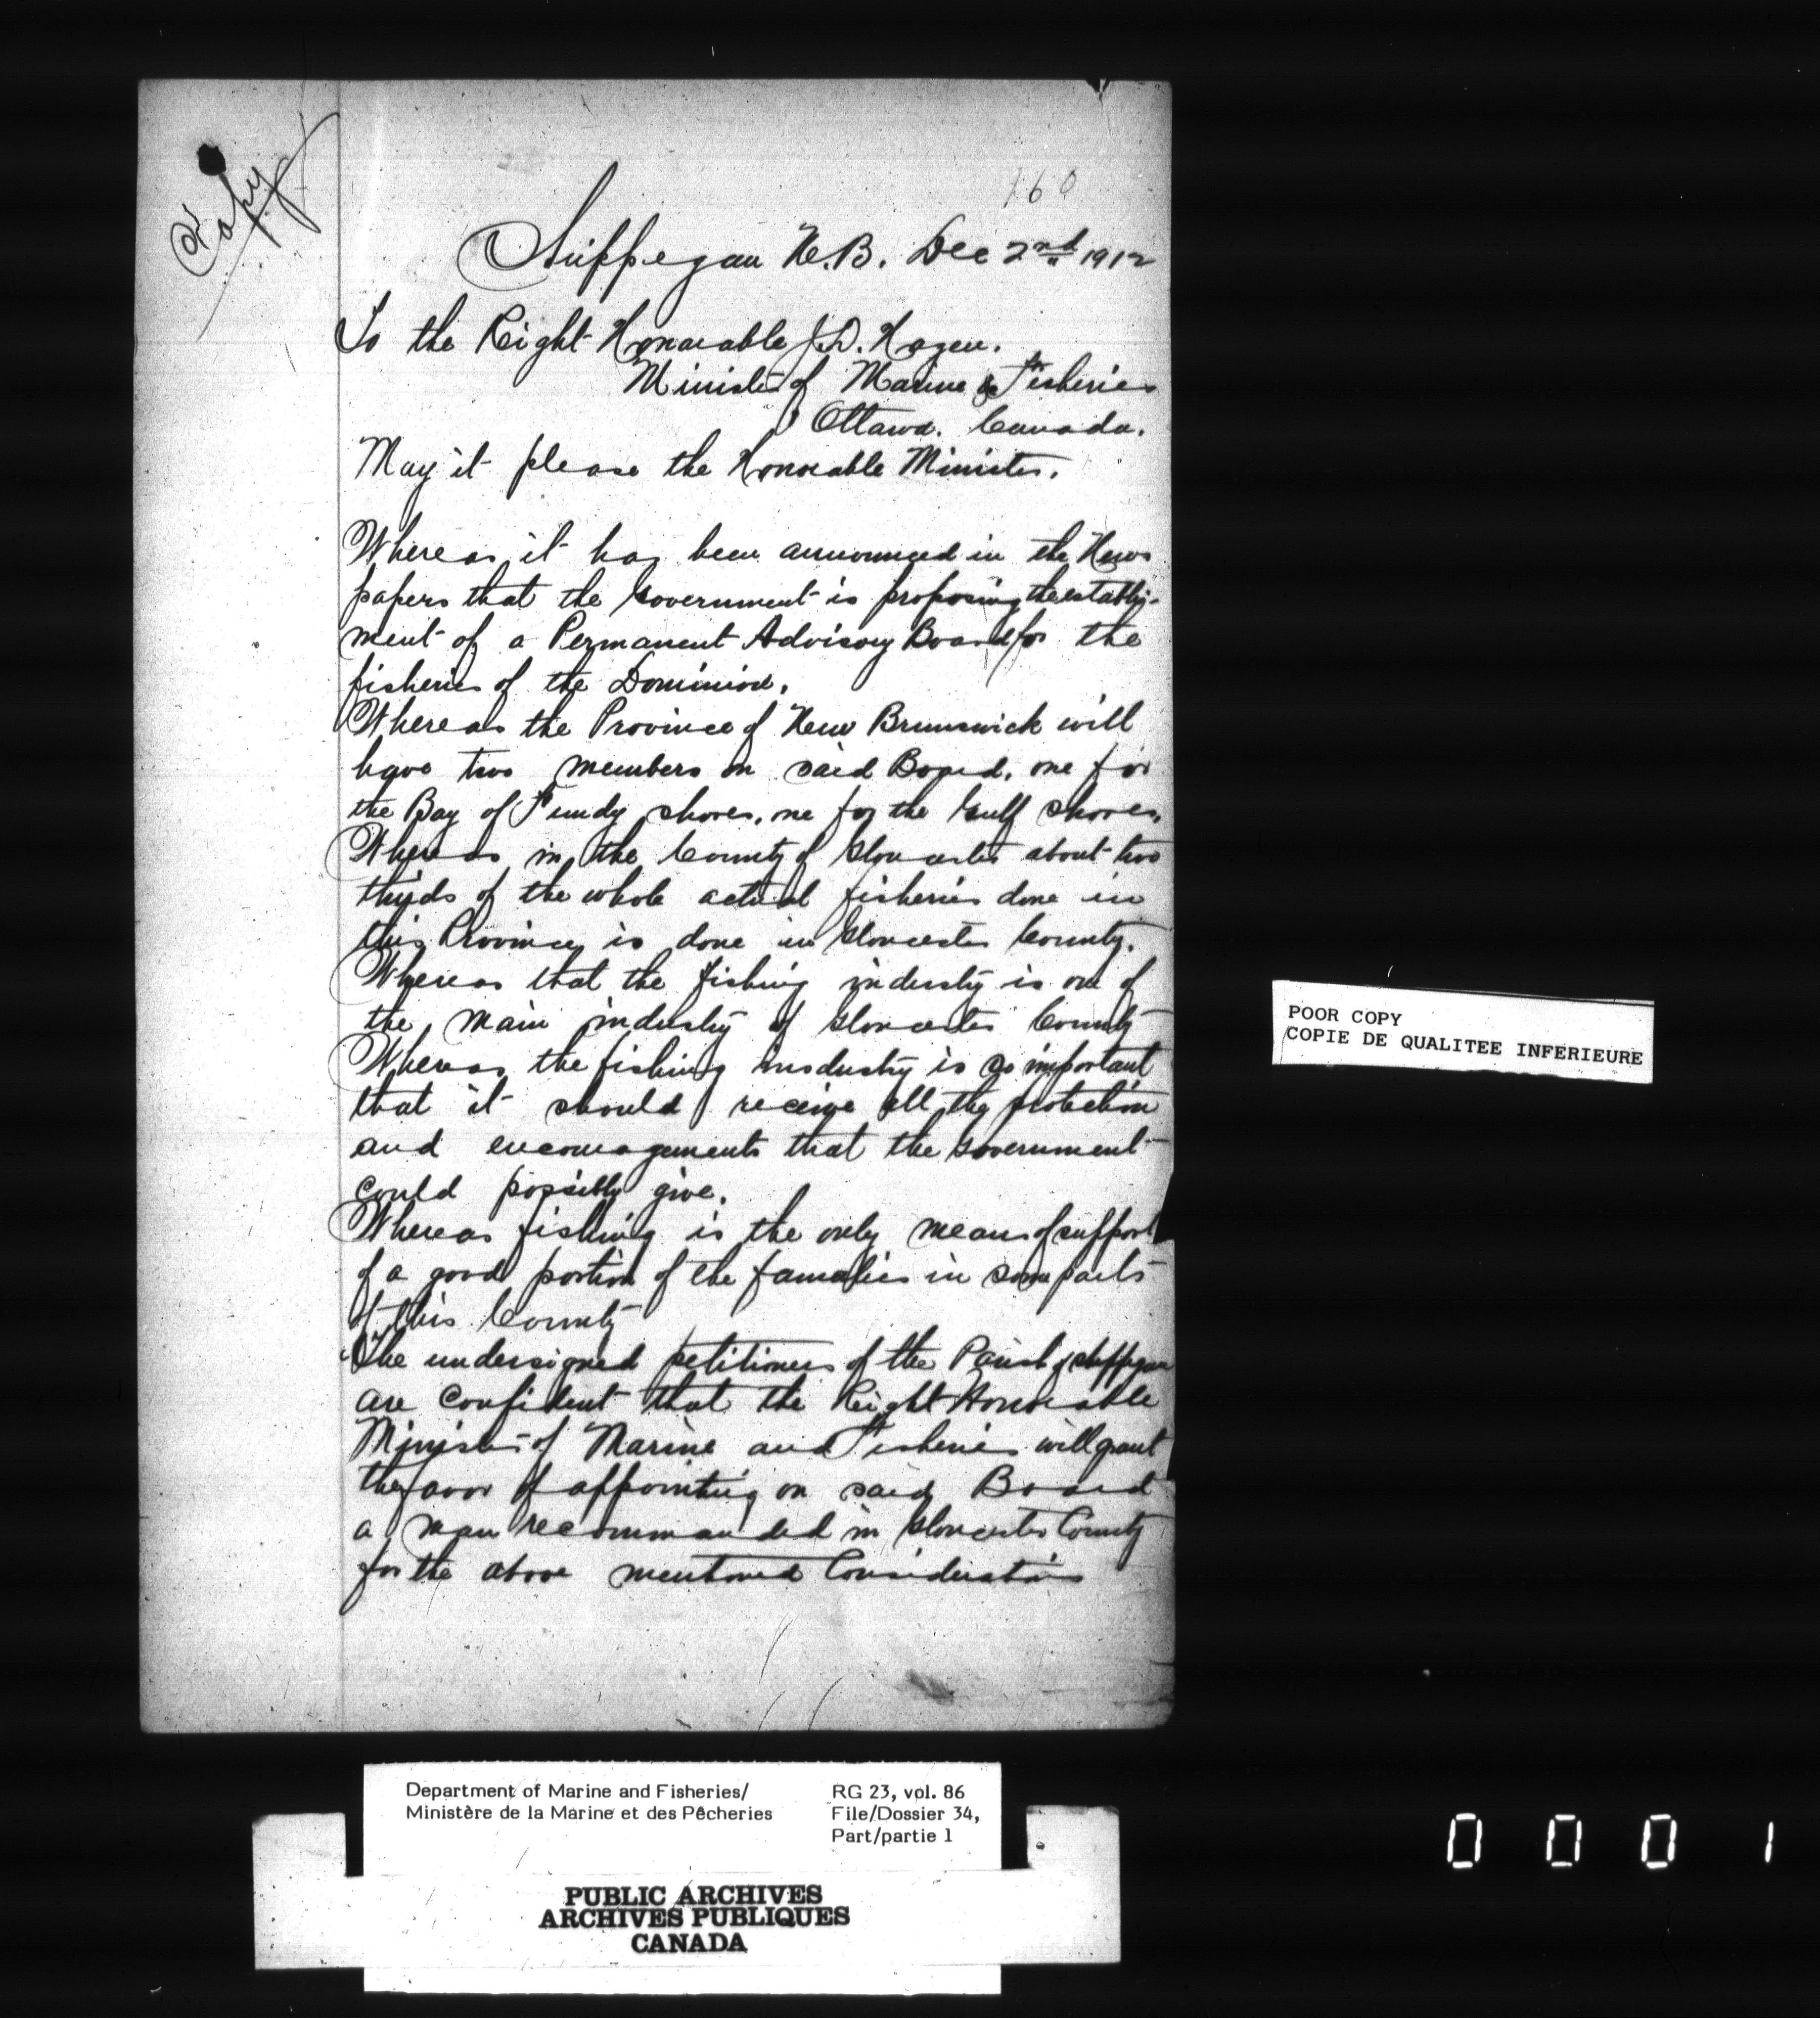 Copy
160
Shippegan N.B. Dec 2nd 1912
To the Right Honorable J.D. Hazen.
Minister of Marine & Fisheries
Ottawa. Canada.
May it please the Honorable Minister.
Whereas it has been announced in the News
papers that the Government is proposing the establi-
ment of a Permanent Advisory Board for the
fisheries of the Dominion.
Whereas the Province of New Brunswick will
have two members on said Board, one for
the Bay of Fundy shores, one for the Gulf shores.
Whereas in the County of Gloucester about two
thirds of the whole actual fisheries done in
this Province is done in Gloucester County.
Whereas that the fishing industry is one of
the main industry of Gloucester County
Whereas the fishing industry is so important
that it should receive all the protection
and encouragements that the Government
could possibly give.
Whereas fishing is the only means of support
of a good portion of the families in some parts
of this County
The undersigned petitioners of the Parish of Shippegan
are confident that the Right Honorable
Minister of Marine and Fisheries will grant
the favor of appointing on said Board
a man recommanded in Gloucester County
for the above mentioned Considerations
POOR COPY
COPIE DE QUALITEE INFERIEURE
Department of Marine and Fisheries/
Ministère de la Marine et des Pêcheries
RG 23, vol. 86
File/Dossier 34,
Part/partie 1
PUBLIC ARCHIVES
ARCHIVES PUBLIQUES
CANADA
0001